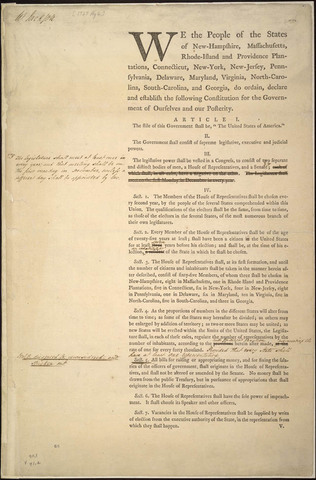 WE the People of the States
of New-Hampshire, Massachusetts,
Rhode-Island and Providence Plan-
tations, Connecticut, New-York, New-Jersey, Penn-
sylvania, Delaware, Maryland, Virginia, North-Caro-
lina, South-Carolina, and Georgia, do ordain, declare
and establish the following Constitution for the Govern-
ment of Ourselves and our Posterity.
ARTICLE I.
The stile of this Government shall be, "The United States of America."
II.
The Government shall consist of supreme legislative, executive and judicial
powers.
III.
The legislative power shall be vested in a Congress, to consist of two separate
and distinct bodies of men, a House of Representatives, and a Senate;
which shall, in all cases, have a negative on the other. The Legislature shall
meet on the first Monday in December in every year.
IV.
Sect. 1. The Members of the House of Representatives shall be chosen eve-
ry second year, by the people of the several States comprehended within this
Union. The qualifications of the electors shall be the same, from time to time,
as those of the electors in the several States, of the most numerous branch of
their own legislatures.
Sect. 2. Every Member of the House of Representatives shall be of the age
of twenty-five years at least; shall have been a citizen in the United States
for at least years before his election; and shall be, at the time of his e-
lection, of the State in which he shall be chosen.
Sect. 3. The House of Representatives shall, at its first formation, and until
the number of citizens and inhabitants shall be taken in the manner herein af-
ter described, consist of sixty-five Members, of whom three shall be chosen in
New-Hampshire, eight in Massachusetts, one in Rhode-Island and Providence
Plantations, five in Connecticut, six in New-York, four in New-Jersey, eight
in Pennsylvania, one in Delaware, six in Maryland, ten in Virginia, five in
North-Carolina, five in South-Carolina, and three in Georgia.
Sect. 4. As the proportions of numbers in the different States will alter from
time to time; as some of the States may hereafter be divided; as others may
be enlarged by addition of territory; as two or more States may be united; as
new States will be erected within the limits of the United States, the Legisla-
ture shall, in each of these cases, regulate the number of representatives by the
number of inhabitants, according to the herein after made,
rate of one for every forty thousand.
Sect. 5. All bills for raising or appropriating money, and for fixing the sala-
ries of the officers of government, shall originate in the House of Representa-
tives, and shall not be altered or amended by the Senate. No money shall be
drawn from the public Treasury, but in pursuance of appropriations that shall
originate in the House of Representatives.
Sect. 6. The House of Representatives shall have the sole power of impeach-
ment. It shall choose its Speaker and other officers.
Sect. 7. Vacancies in the House of Representatives shall be supplied by writs
of election from the executive authority of the State, in the representation from
which they shall happen.
V.